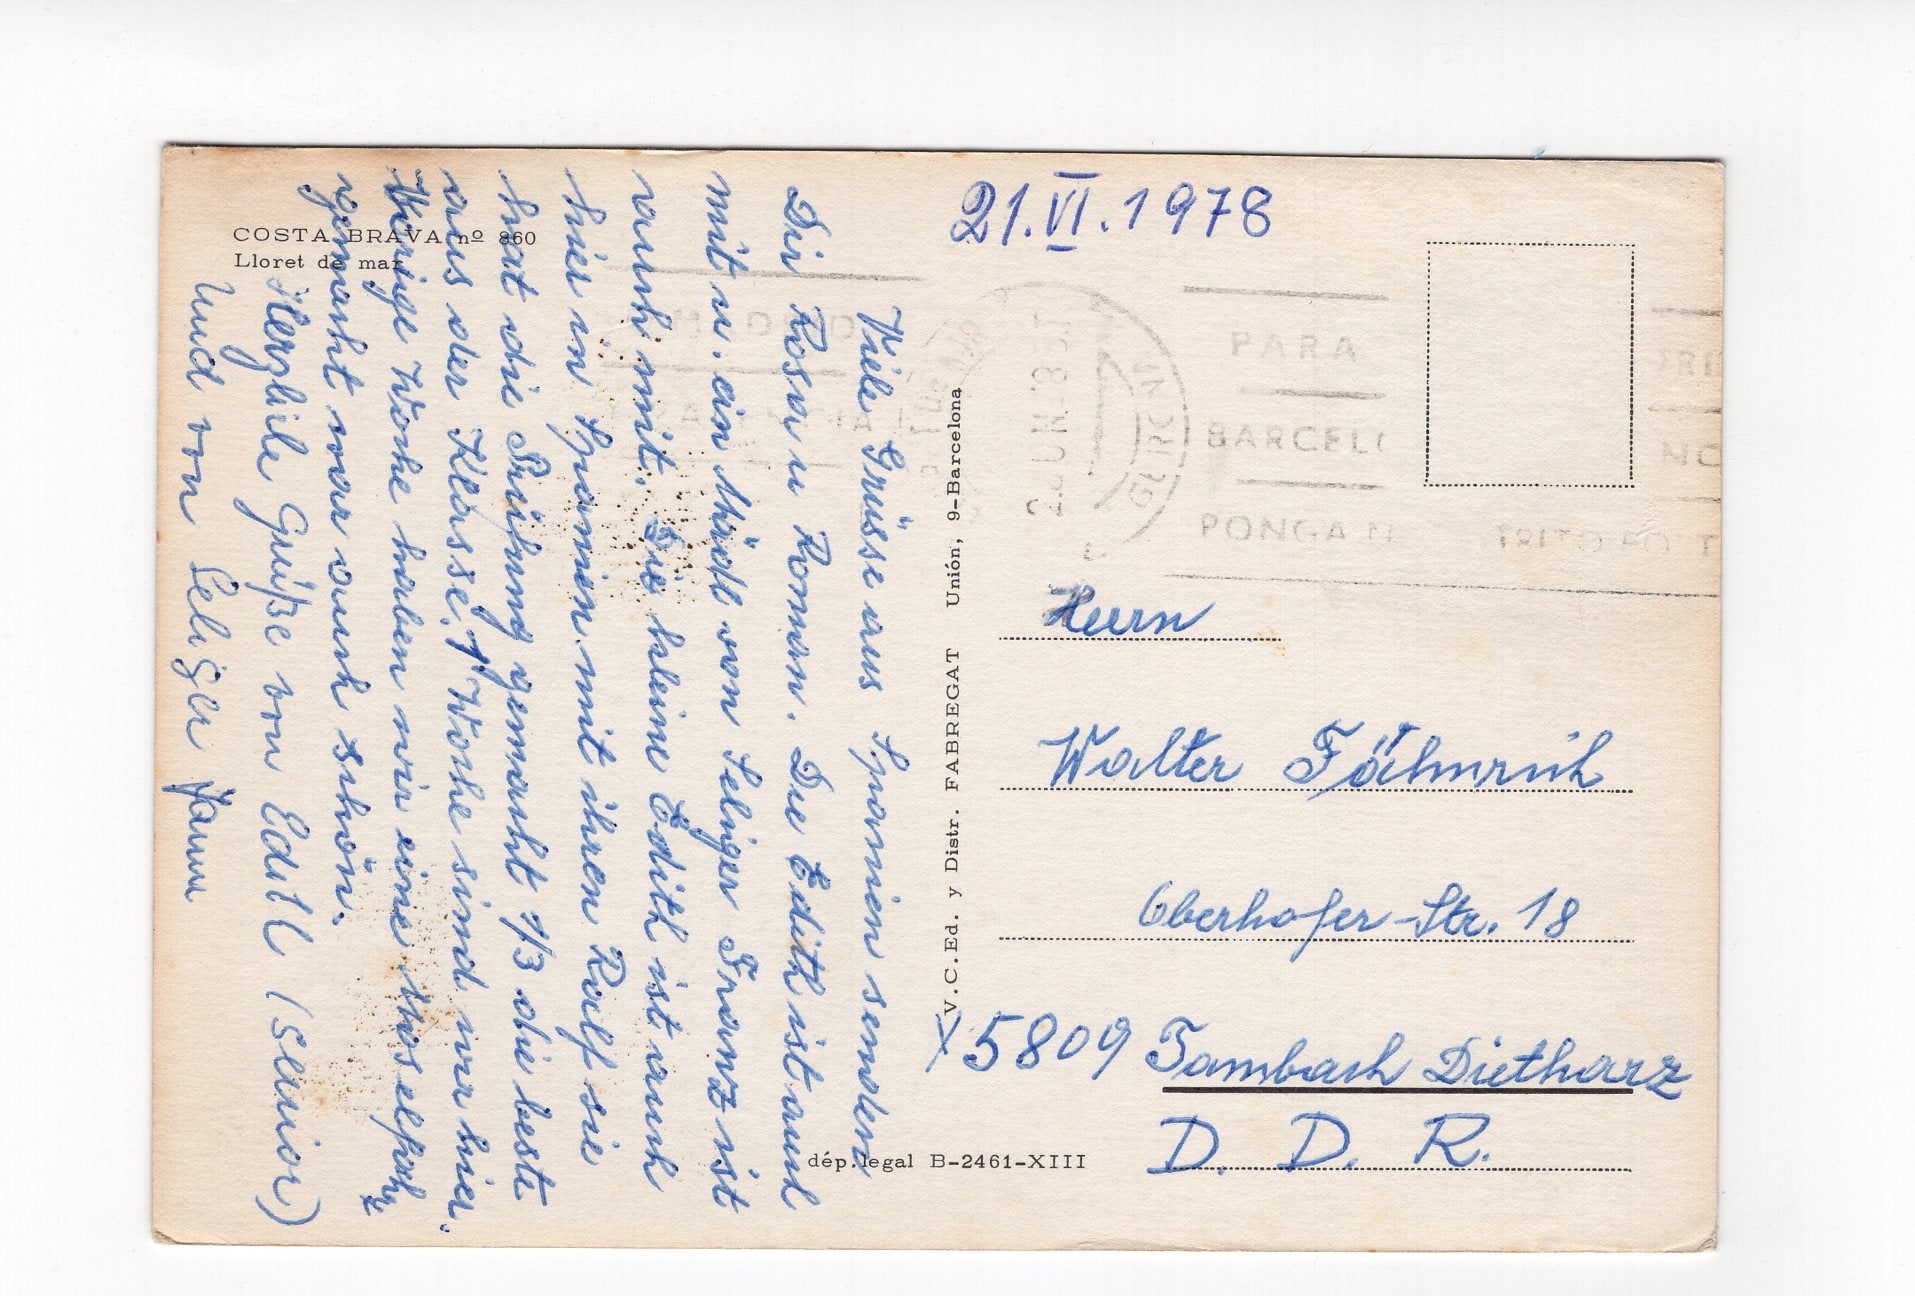 COSTA BRAVA nº 860
Lloret de mar
21.VI.1978
Viele Grüsse aus Spanien senden
Dir Rosa u Roman. Die Edith ist auch
mit u. ein Mädl vom Seliger Franz ist
auch mit. Die kleine Edith ist auch
hier in Spanien mit ihren Rolf sie
hat die Prüfung gemacht 1/3 die beste
aus der Klasse. 1 Woche sind wir hier.
Vorige Woche haben wir eine
gemacht war auch schön.
Herzliche Grüße von Edith (Senior)
Und von Seliger
V.C.Ed. y Distr. FABREGAT Unión, 9-Barcelona
dép. legal B-2461-XIII
GERONA
PARA
BARCEL
PONGA
Herrn
Walter Fähnrich
Oberhofer-Str. 18
5809 Tambach Dietharz
D. D. R.